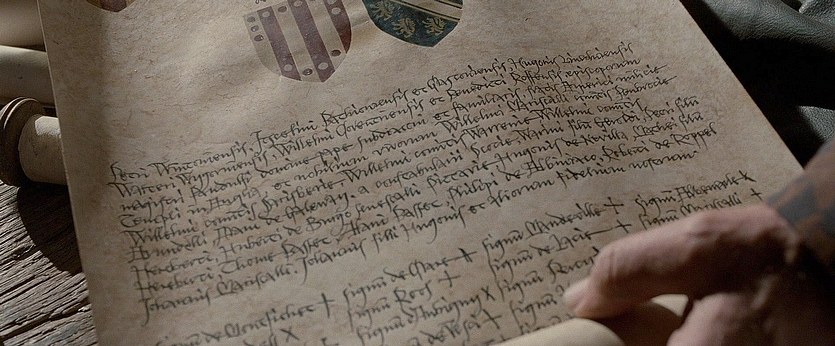 Petri Wyntoniensis, Jocelini Bathoniensis et Glastoniensis, Hugonis Lincolniensis
Walteri Wygorniensis, Willelmi Coventriensis et Benedicti Roffensis episcoporum
magistri Pandulfi domini pape subdiaconi et familiaris fratris Aymerici milicie
Templi in Anglia, et nobilium virorum Willelmi Mariscalli comitis Penbrocie
Willelmi comitis Sarisberie, Willelmi comitis Warennie Willelmi comitis
Arundelli, Alani de Galeway. a constabularii Scocie Warini filii Geroldi, Petri filii
Hereberti, Huberti de Burgo senescalli Pictavie Hugonis de Nevilla Mathei filii
Hereberti Thome Basset, Alani Basset, Philippi de Albiniaco, Roberti de Roppel
Johannis Marscalli, Johannis filii Hugonis et aliorum fidelium nostrorum
de Montfichet + signum de Clare X signum Mandeville + signum Albemarle X
X signum Roos + signum de Lacie + signum Marscalli +
signum d'Aubigny X signum
de Vesci + signum